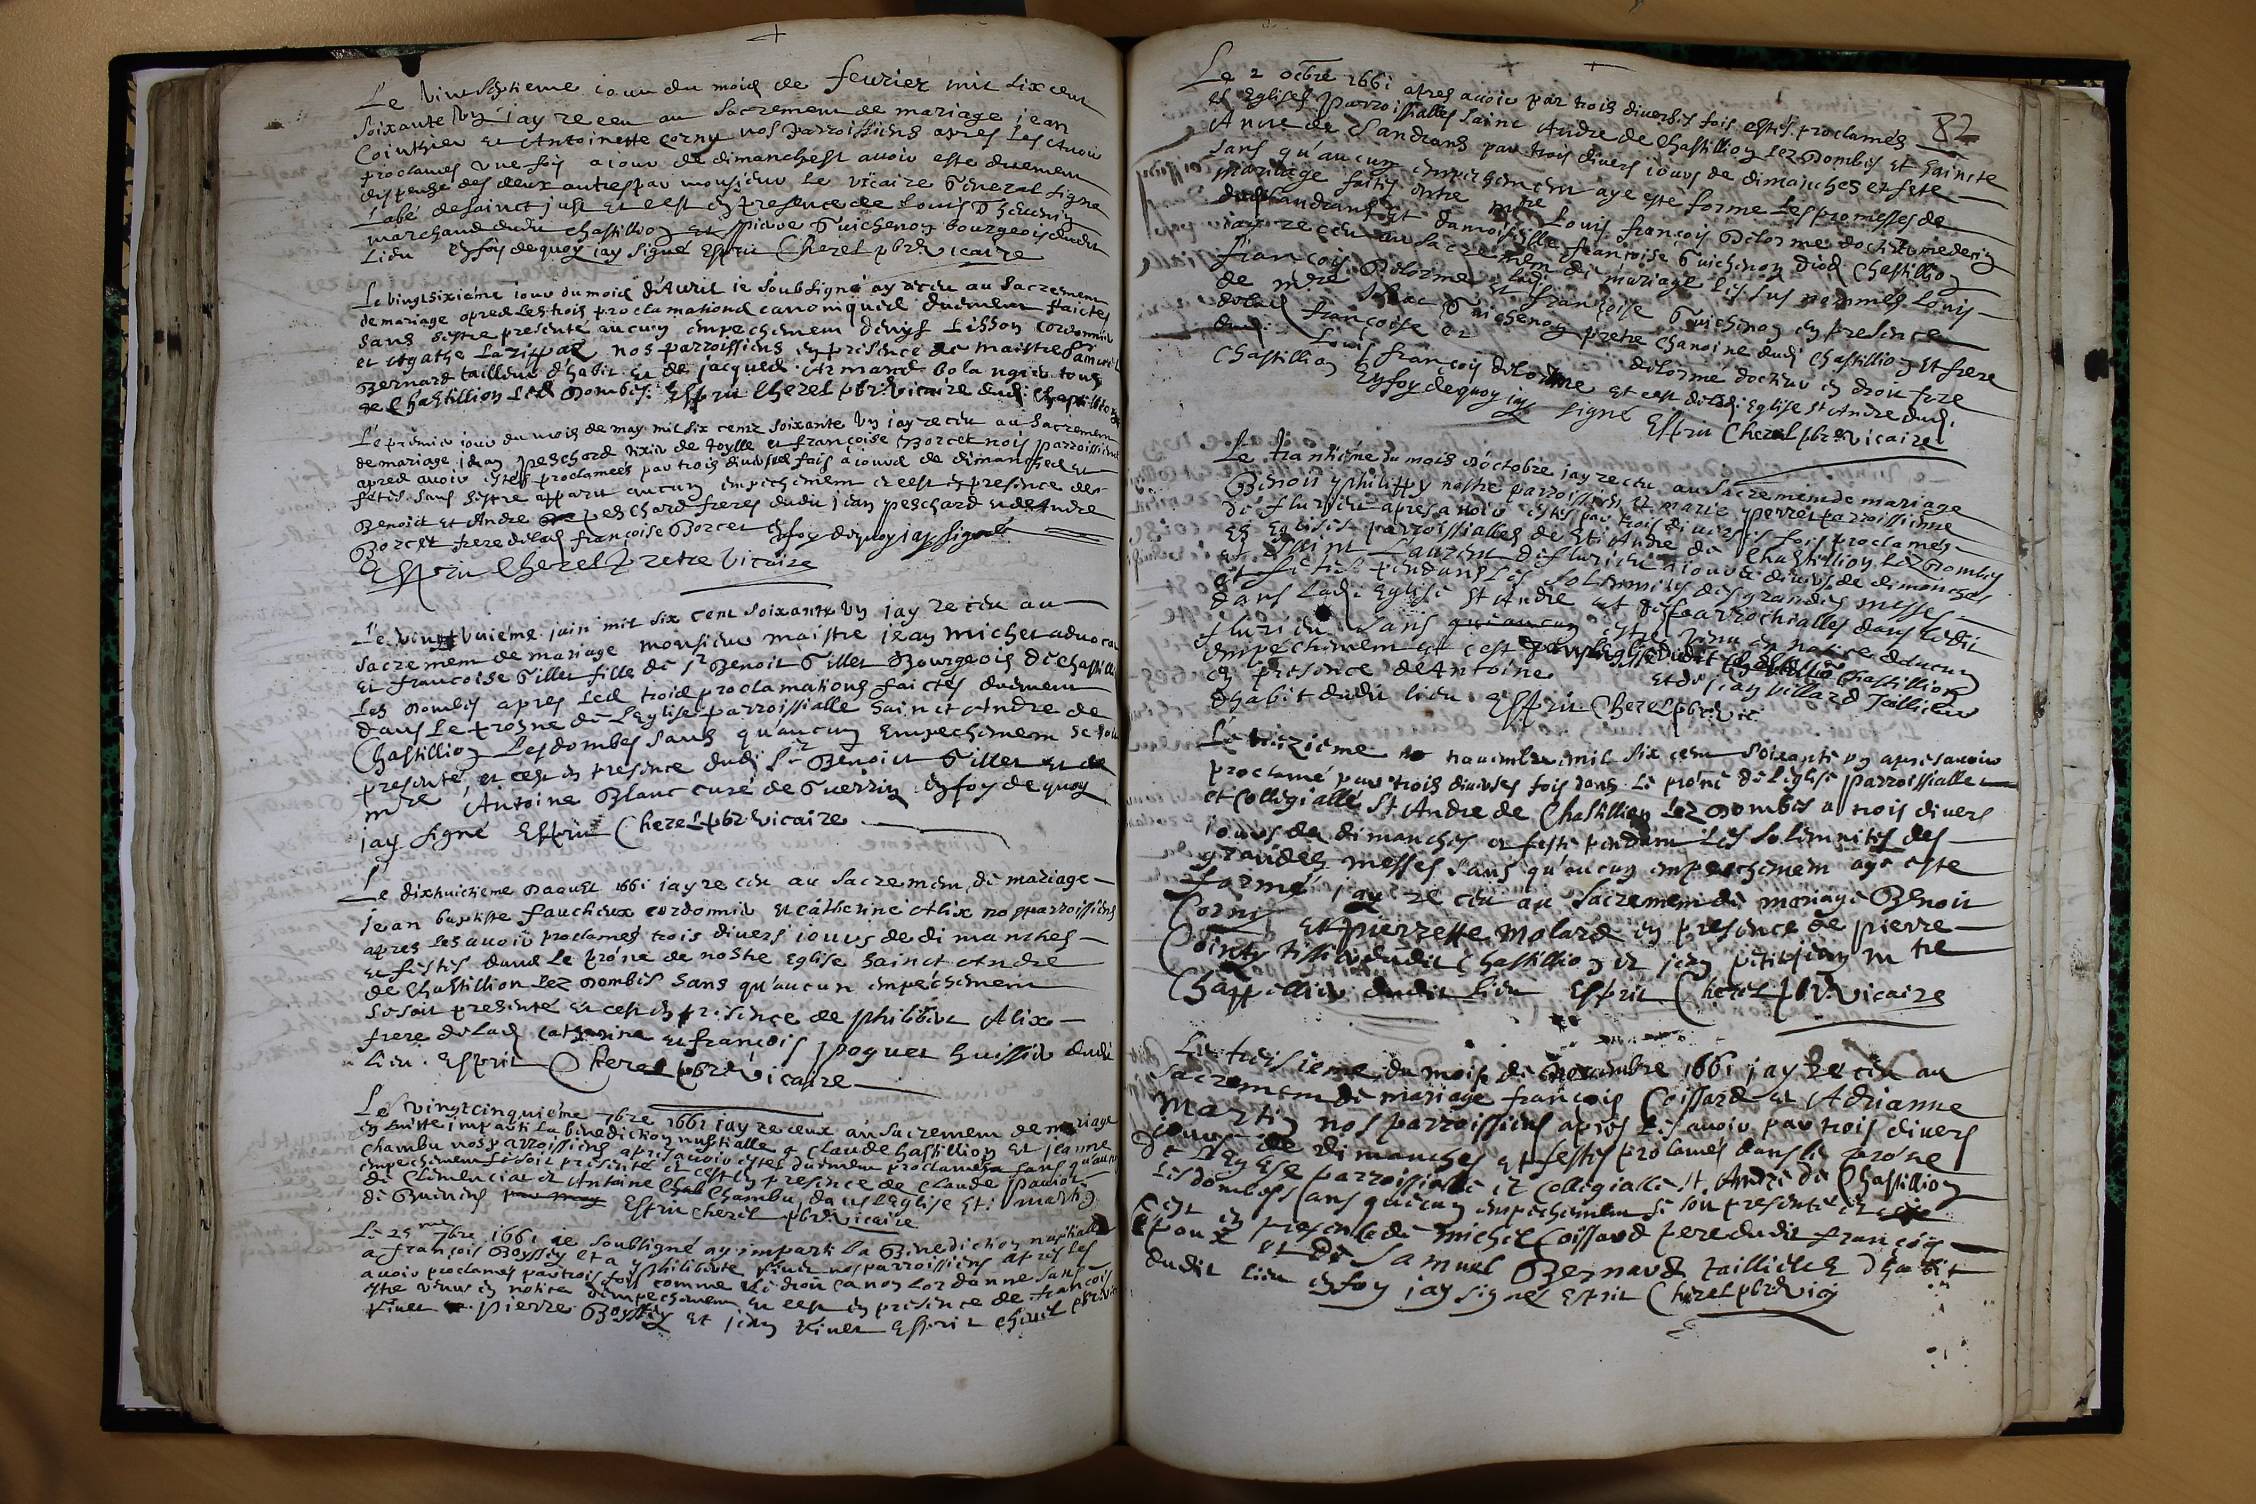 Le vint septieme iour du mois de feurier mil six cent
soixante un iay receu au sacrement de mariage jean
Cointhier et Antoinette Corny nos parroissiens apres les auoir
proclames vne fois a iour de dimanche et auoir este duement
dispense des deux autres par monsieur le vicaire General signe
l'abé de sainct just et cest en presence de Louis
marchand dudit Chastillion et pierre Guichenon bourgeois dudit
lieu en foy de quoy iay signé Esprit Cherel pbr vicaire
Le vingt sixiéme iour du mois d'Auril ie soubsigné ay receu au sacrement
de mariage apres les trois proclamations canoniques duement faictes
sans sestre presenté aucun empechement denys Lisson cordonnier
et Agathe nos parroissiens en presence de maistre Samuel
Bernard tailleur d'habit et de jacques Armand bolangier tous
de Chastillion les Dombes. Esprit Cherel pbr vicaire dudi Chastillion
Le premier iour du mois de may mil six cent soixante un iay receu au Sacrement
de mariage jean peschard et françoise Borcet nos parroissiens
apres auoir estes proclamees par trois diuerses fois a iours de dimanches et
fétes sans sestre apparu aucun empechement et cest en presence des
Benoict et Andre peschard freres dudit jean peschard et de Andre
Borcet frere de lad françoise Borcet En foy de quoy iay signé
Esprit Cherel pretre vicaire
Le vingt vuiéme juin mil six cent soixante un jay receu au
sacrement de mariage monsieur maistre jean michet aduocat
et francoise Gillet fille de sr Benoit Gillet Bourgeois de Chastillion
les Dombes apres les trois proclamations faictes duement
dans le prosne de l'Eglise parroissialle Sainct Andre de
Chastillion Les dombes sans qu'aucun Empechement se soit
presenté et cest en presence dudi sr Benoict Gillet et de
mre Antoine Blanc curé de Guerrin en foy de quoy
iay signé Esprit Cherel pbr vicaire
Le dixhuictieme Daoust 1661 jay receu au sacrement de mariage
jean baptiste faucheux cordonnier et catherine Alix nos parroissiens
apres les auoir proclames trois diuers iours de dimanches
et festes dans le prone de nostre Eglise Sainct Andre
de Chastillion Lez Dombes sans qu'aucun empechement
se soit presenté et cest en presence de philibert Alix
frere de lad catherine et francois poguet huissier dudit
lieu. Esprit Cherel pbr vicaire
Le vingtcinquiéme 7bre 1661 jay receux au sacrement de mariage
en suitte imparti la benediction nuptialle a Claude hastillion et jeanne
Chambu nos parroissiens apres auoir estes duement proclames sans qu'aucun
empechement se soit presenté et cest en presence de Claude
de Clemenciat et Antoine Chambu, dans l'Eglise St. martin
de Buenens Esprit Cherel pbr vicaire
Le 25 7bre 1661 ie soubsigné ay imparti la Benediction nuptialle
a françois Boyssey et a philiberte nos parroissiens apres les
auoir proclames par trois fois comme le droit canon lordonne sans
estre venu en notice dempechement et cest en presence de francois
pierre Boyssey et jean Esprit Cherel pbr vic
82
Le 2 octbre 1661 apres auoir par trois diuerses fois estés proclamés
es Eglises parroissialles Saint Andre de Chastillion lez Dombes et saincte
Anne de Sandrans par trois diuers iours de dimanches et fete
sans qu'aucun empechement aye este formé les promesses de
mariage faites entre mre Louis françois Delorme docteur medecin
de Sandrans et damoiselle françoise Guichenon diod Chastillion
iay receu au sacrement de mariage les sus nommés Louis
françois Delorme et lad françoise Guichenon en presence
de mre Guichenon pretre chanoine dudi Chastillion et frere
delad françoise et delorme docteur en droit frere
dud. Louis françois delorme et cest de ladi Eglise St Andre dudi
Chastillion En foy de quoy iay signé Esprit Cherel pbr vicaire
Le trantiéme du mois d'octobre jay receu au sacrement de mariage
Benoit philippy nostre parroissien et marie perret parroissienne
de flurieu apres auoir estes par trois diuerses fois proclames
es Eglises parroissialles de St Andre de Chastillion lez Dombes
et Saint Laurent de flurieu a iours diuers de dimanches
et fetes pendans les solemnités des grandes messes
dans ladi Eglise St Andre et parrochialles dans ledit
flurieu sans estre venu en notice daucun
empechement et cest Chastillion
en presence de Antoine et de jean Villard Taillieur
dhabit dudit lieu. Esprit Cherel pbr vic
Le trezieme nouembre mil six cent soixante un apres auoir
proclamé par trois diuerses fois dans le prone de l'église parroissialle
et collegialle St Andre de Chastillion lez Dombes a trois diuers
iours de dimanches et feste pendant les solemnites des
grandes messes sans qu'aucun empeschement aye este
formé jay receu au sacrement de mariage Benoit
Corny et pierrette molard en presence de pierre
Cointy tissier dudit Chastillion et jean petitjean mtre
Chappellier dudit lieu Esprit Cherel pbr vicaire
Le troisieme du mois de nouembre 1661 jay Receu au
sacrement de mariage françois Coissard et Adrianne
Martin nos parroissiens apres les auoir par trois diuers
iours de dimanches et festes proclamés dans le prone
de l'Eglise parroissialle et collegialle St Andre de Chastillion
les dombes sans qu'aucun empechement se soit presenté et
cest en presence de michel Coissard pere dudit françois
Epoux et de Samuel Bernard taillieur Dhabit
dudit lieu en foy jay signé Esprit Cherel pbr vic